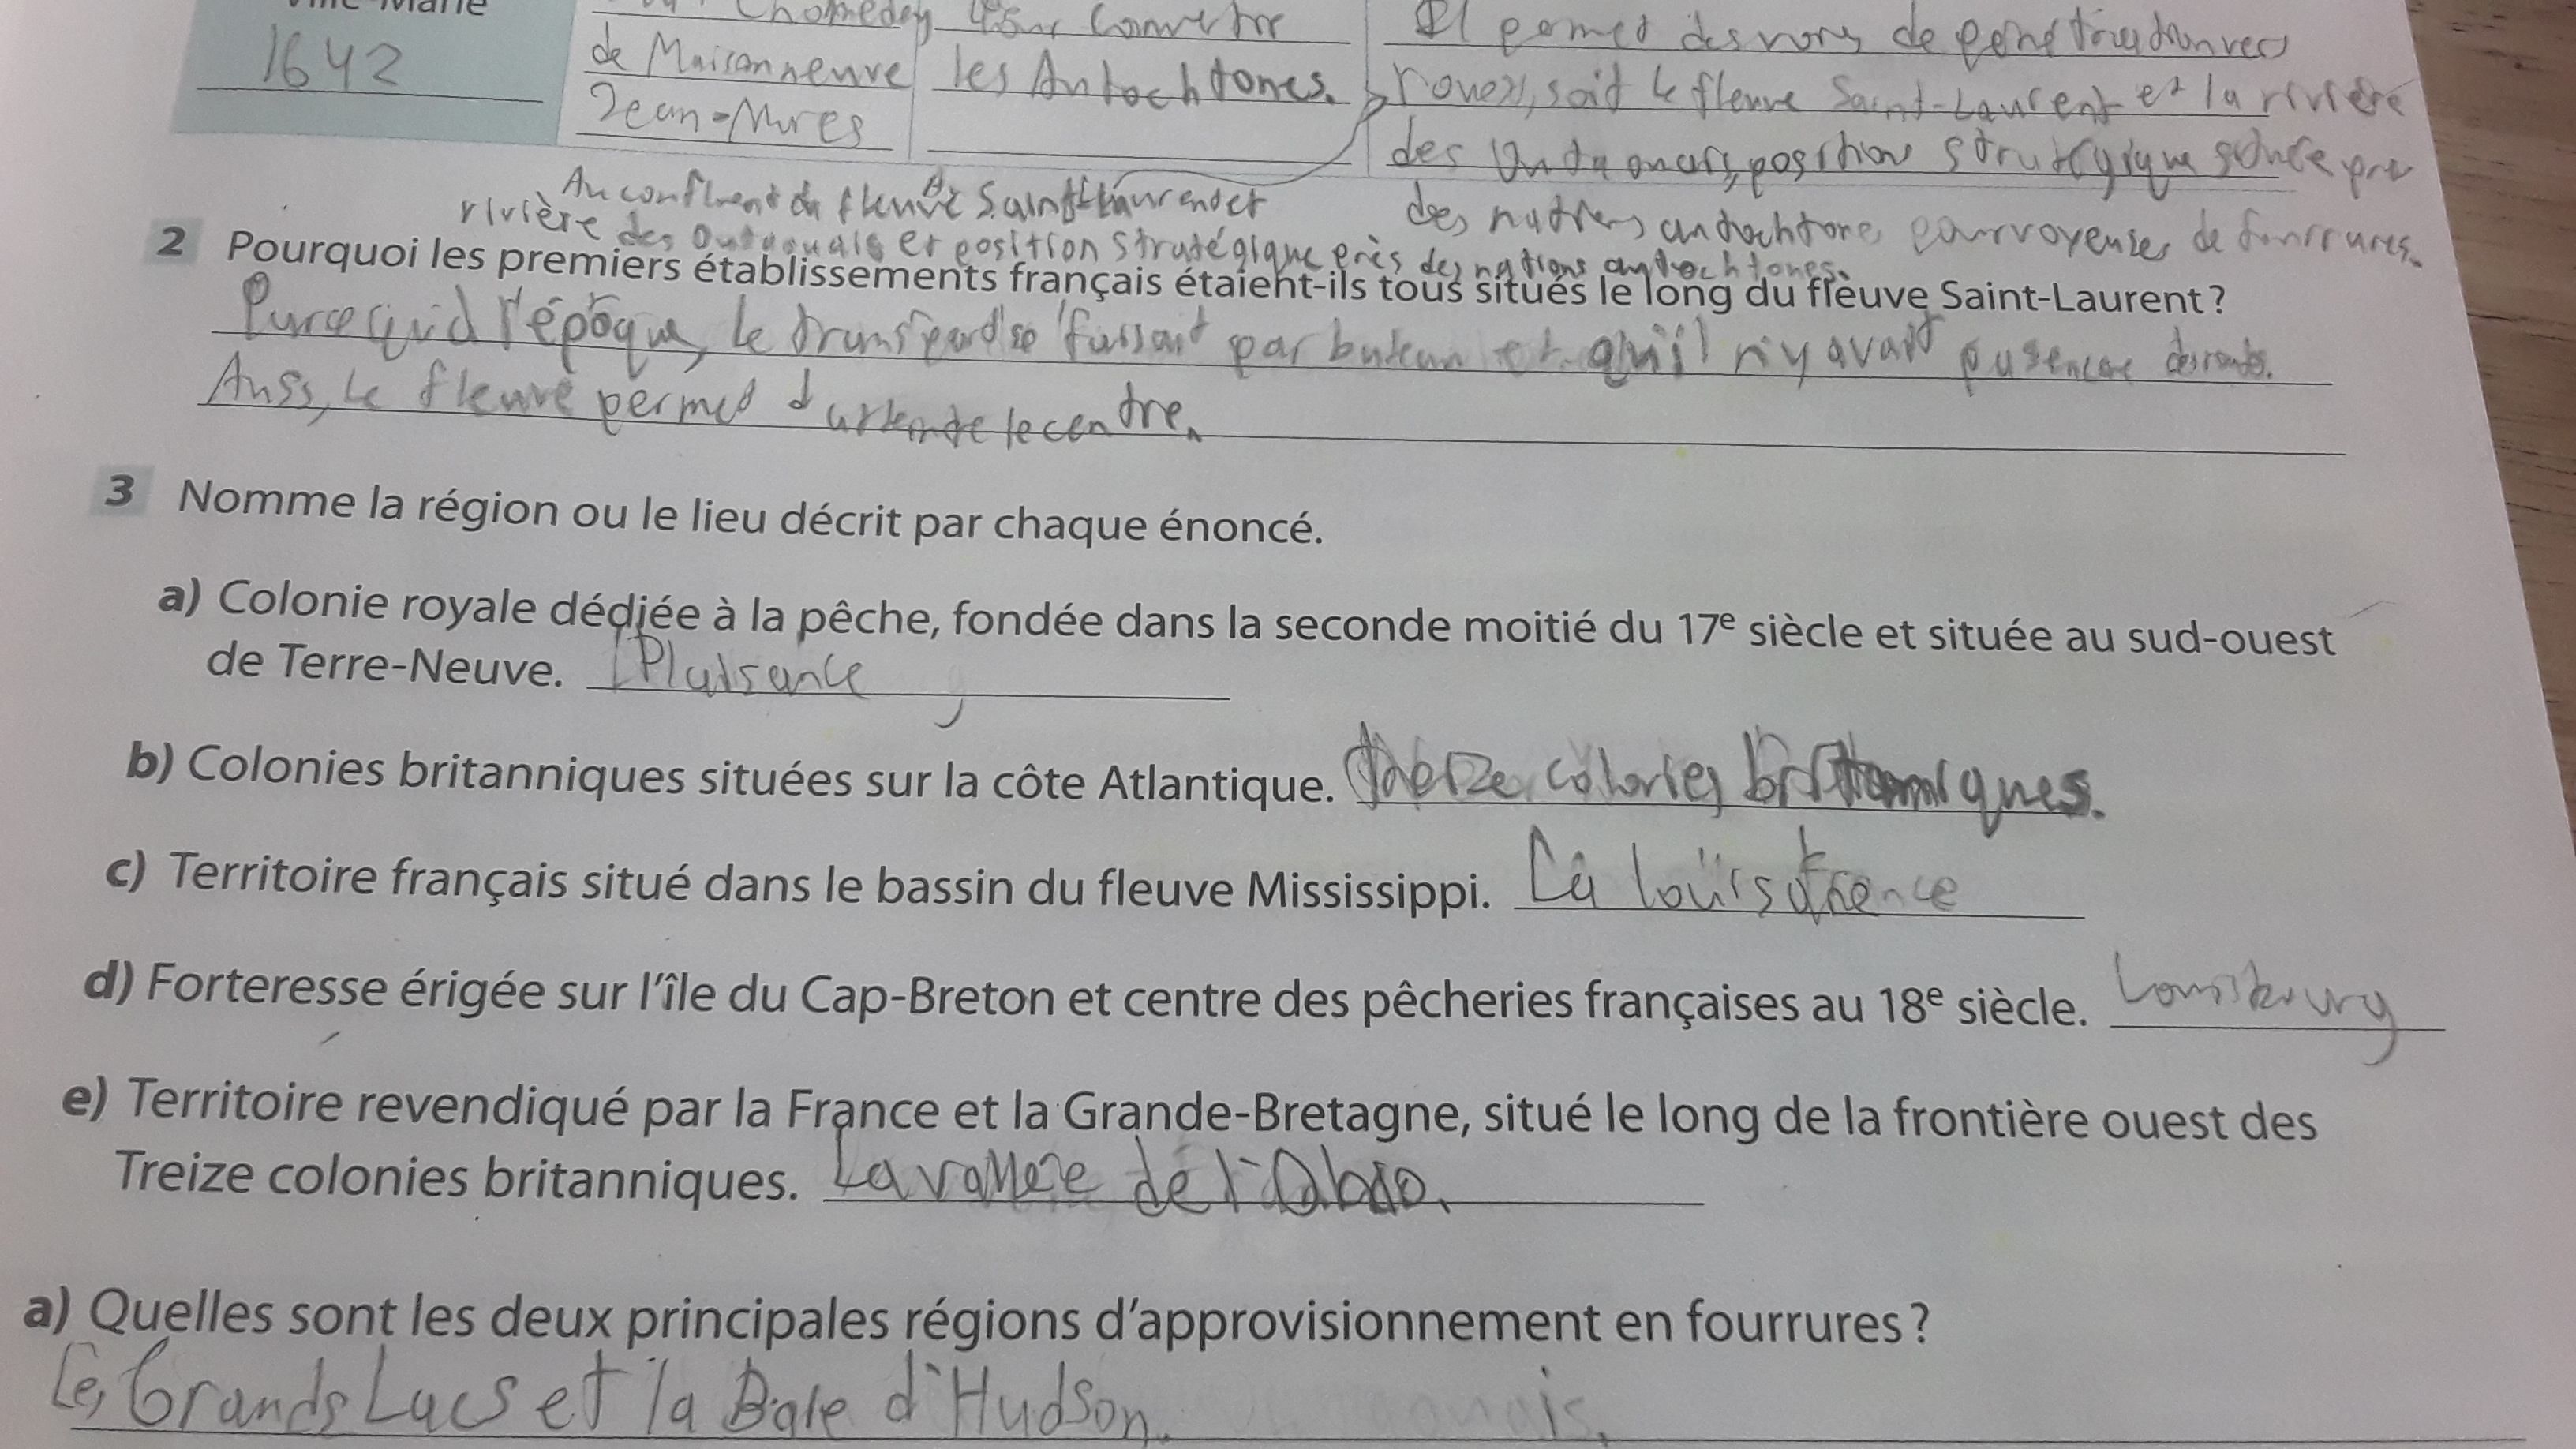 Ville-Marie
1642
Chomedey
de Maisonneuve
Jean-Mnces
Pour Convertir
les Autochtones.
Il permet des voies de pénétration vers
soit le fleuve Saint-Laurent et la rivière
des position
des nations autochtones pourvoyeuses de fourrures.
Au confluent du fleuve Saint-Laurent et
rivière des Outaouais et position stratégique près des nations autochtones.
2 Pourquoi les premiers établissements français étaient-ils tous situés le long du fleuve Saint-Laurent ?
Parce qu'à l'époque, le transport se faisait par bateau et qu'il n'y avait pas encore des routes.
Aussi, le fleuve permet d'atteindre le centre.
3 Nomme la région ou le lieu décrit par chaque énoncé.
a) Colonie royale dédiée à la pêche, fondée dans la seconde moitié du 17e siècle et située au sud-ouest
de Terre-Neuve. Plaisance
b) Colonies britanniques situées sur la côte Atlantique. treize colonies britanniques.
c) Territoire français situé dans le bassin du fleuve Mississippi. La
d) Forteresse érigée sur l'île du Cap-Breton et centre des pêcheries françaises au 18e siècle. Louisbourg
e) Territoire revendiqué par la France et la Grande-Bretagne, situé le long de la frontière ouest des
Treize colonies britanniques. La vallée de l'Ohio.
a) Quelles sont les deux principales régions d'approvisionnement en fourrures ?
Les Grands Lacs et la Baie d'Hudson.